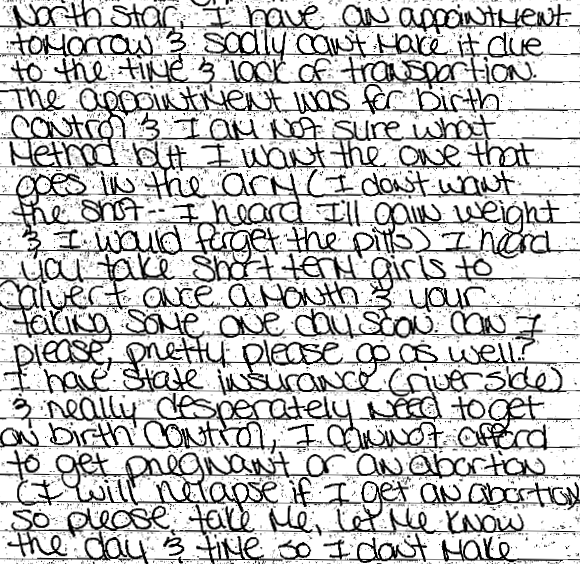 North Star, I have an appointment
tomorrow & sadly can't make it due
to the time & lack of transportion.
The appointment was for birth
control & I am not sure what
method but I want the one that
goes in the arm (I don't want
the shot -- I heard I'll gain weight
& I would forget the pills) I heard
you take short term girls to
Calvert once a month & your
taking some one day soon. Can I
please, pretty please go as well?
I have state insurance (riverside)
& really desperately need to get
on birth control, I cannot afford
to get pregnant or an abortion
(I will relapse if I get an abortion
so please take me, let me know
the day & time so I don't make